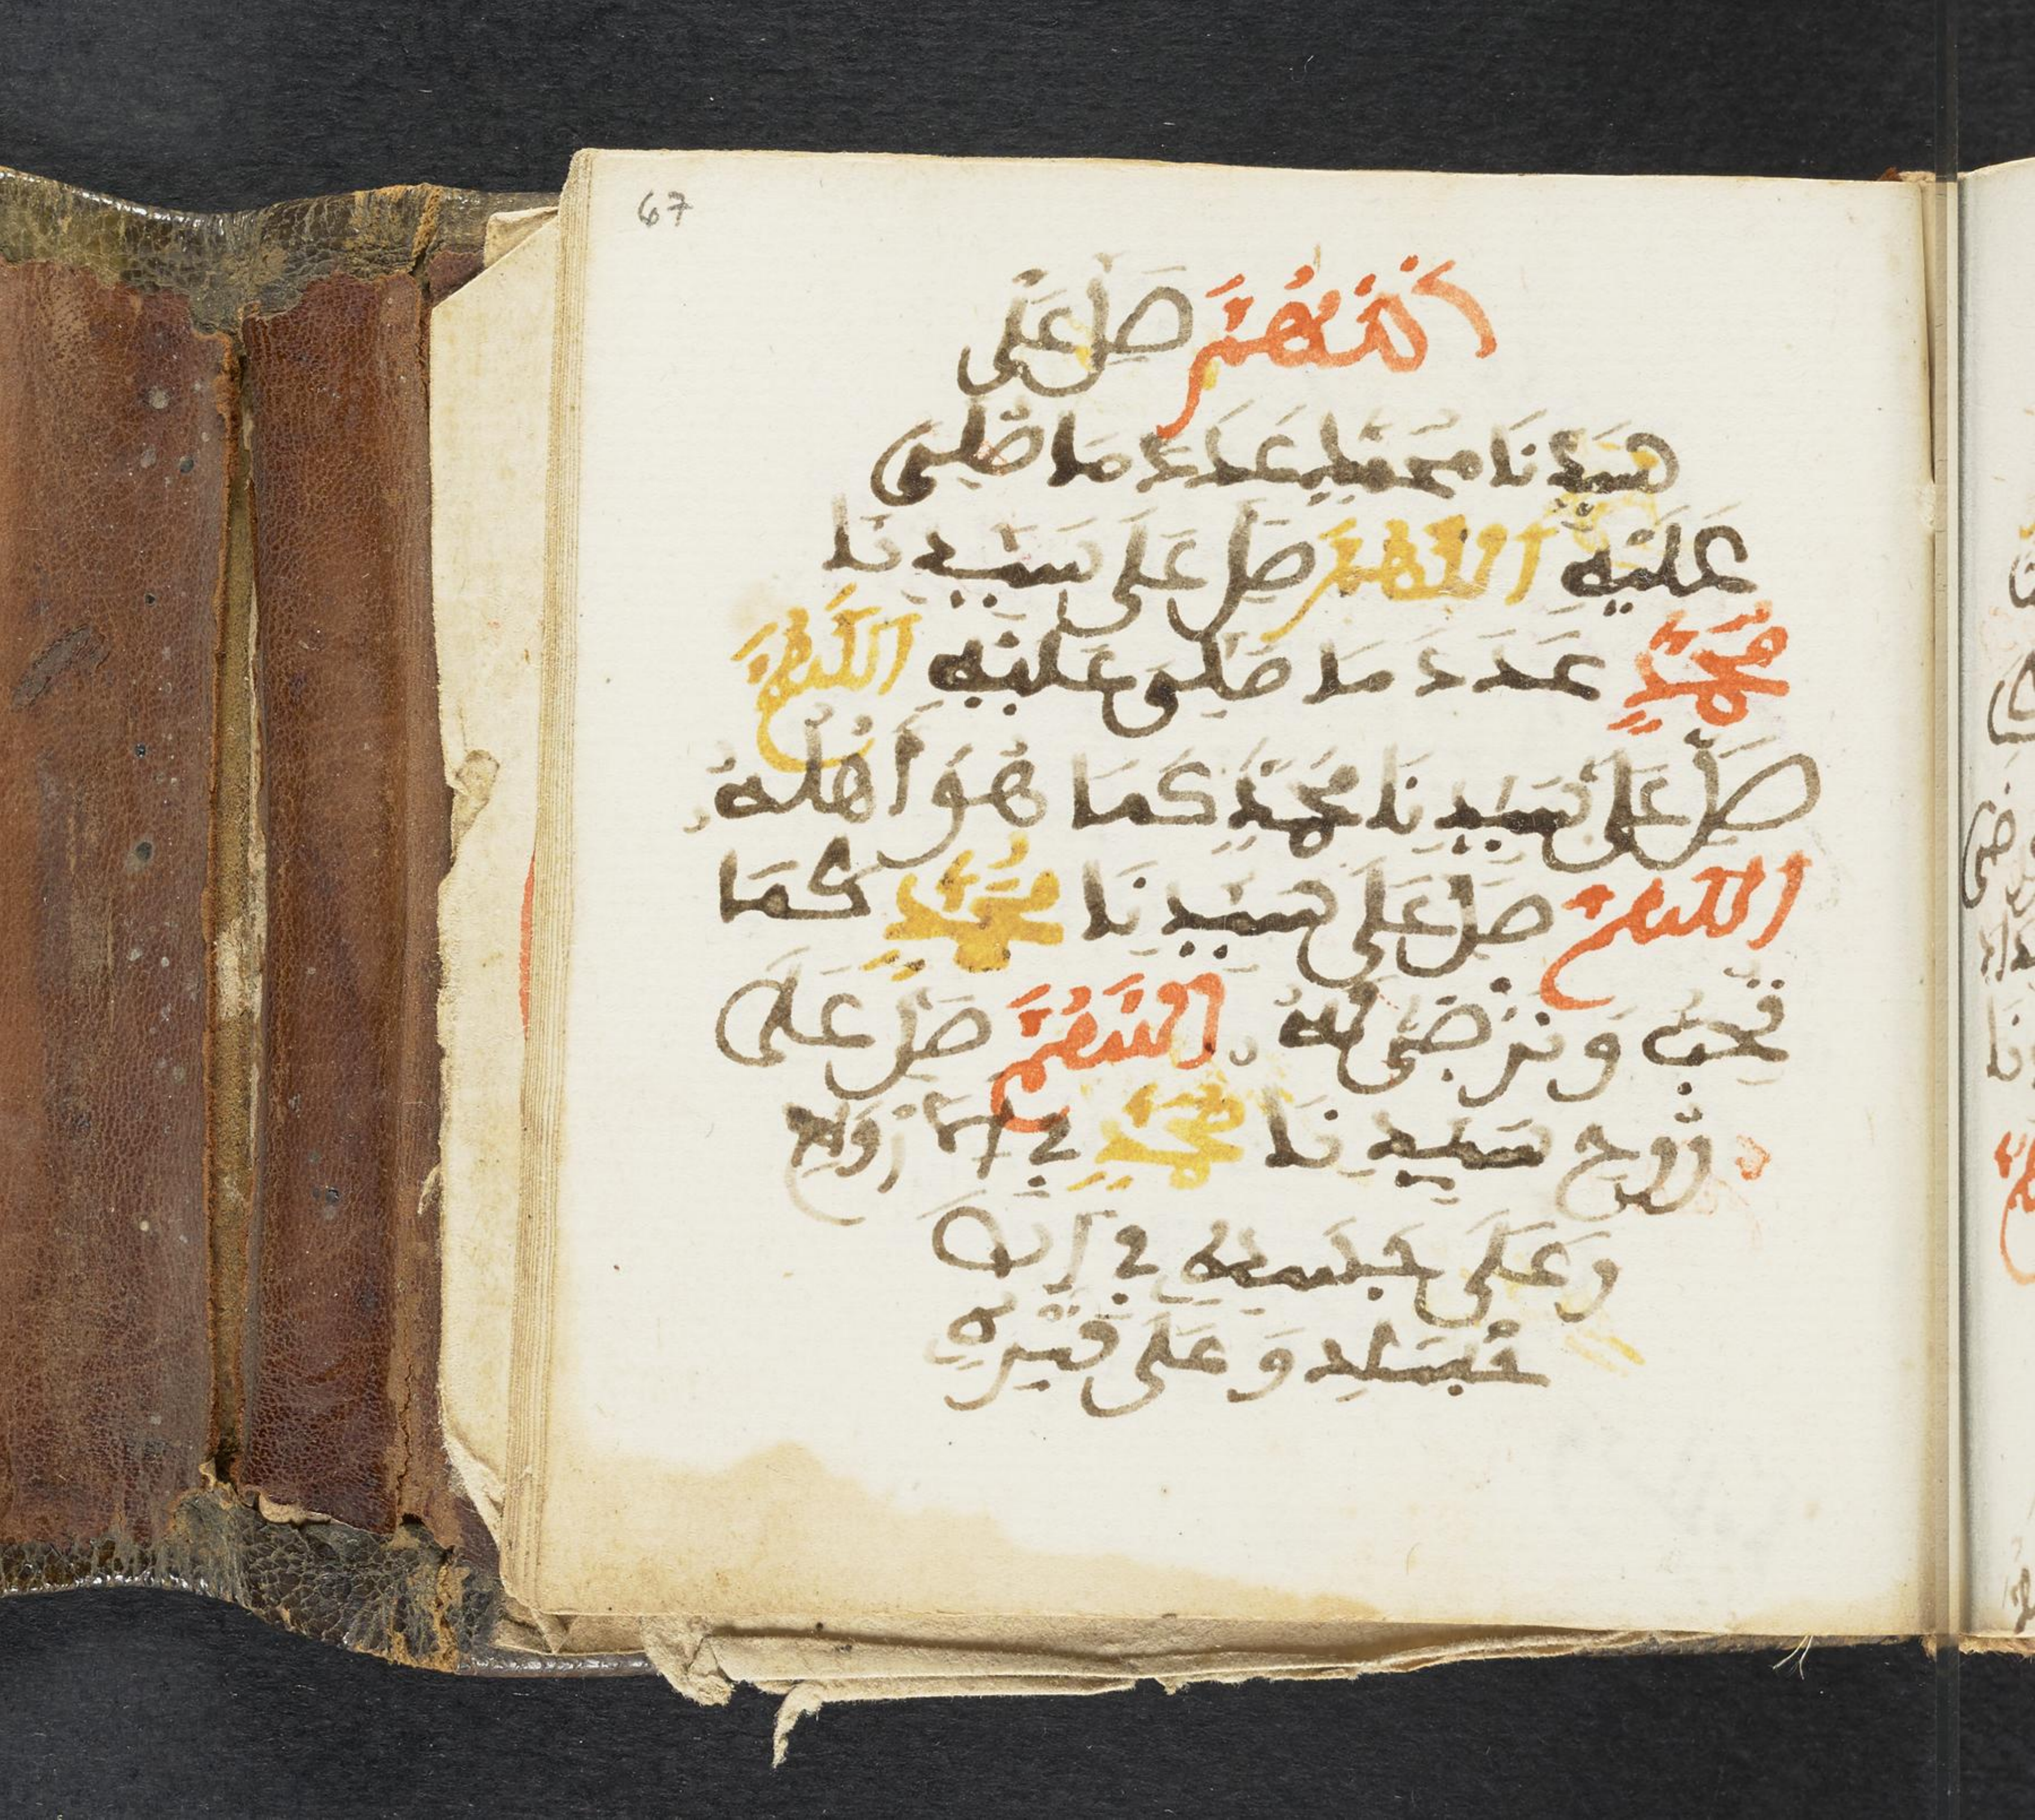 67
اللَّهُمَّ صَلِّ عَلَى
سَيِّدِنَا مُحَمَّدٍ عَدَدَ مَا صُلِّىَ
عَلَيْهِ اللَّهُمَّ صَلِّ عَلَى سَيِّدِنَا
مُحَمَّدٍ عَدَدَ مَا صُلِّىَ عَلَيْهِ اللَّهُمَّ
صَلِّ عَلَى سَيِّدِنَا مُحَمَّدٍ كَمَا هُوَ أَهْلُهُ
اللَّهُمَّ صَلِّ عَلَى سَيِّدِنَا مُحَمَّدٍ كَمَا
تُحِبُّ وَتَرْضَى لَهُ اللَّهُمَّ صَلِّ عَلَى
رُوحِ سَيِّدِنَا مُحَمَّدٍ فِي الْأَرْوَاحِ
وَعَلَى جَسَدِهِ فِي
وَعَلَى قَبْرِهِ